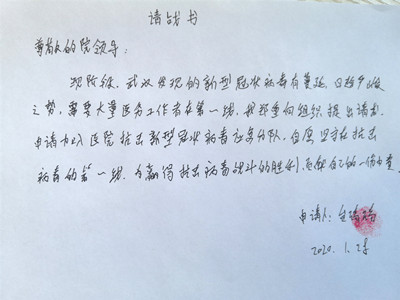 请战书
尊敬的院领导:
现阶段,武汉发现的新型冠状病毒有蔓延、日趋严峻
之势,需要大量医务工作者在第一线,我郑重向组织提出请求,
申请加入医院抗击新型冠状病毒应急分队,自愿坚守在抗击
病毒的第一线,为赢得抗击病毒战斗的胜利,贡献自己的一份力量。
申请人:
2020.1.28